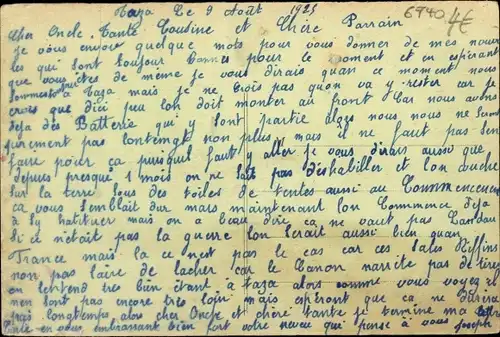 Taza Le 9 Août 1925
6940 4€
Cher Oncle Tante Cousine et Chère Parrain
je vous envoie quelque mots pour vous donner de mes nouv
les qui sont toujour bonnes pour le moment et en espérant
que vous êtes de même je vous dirais quan ce moment nous
sommes à Taza mais je ne crois pas quon va y rester car je
crois que dici peu lon doit monter au front Car nous avons
deja des Batterie qui y sont partie alors nous nous ne serons
surement pas lontemps non plus mais il ne faut pas sen
faire pour ça puisquil faut y aller je vous dirais aussi que
depuis presque 1 mois on ne sait pas déshabiller et lon couche
sur la terre sous des toiles de tentes aussi au Commencement
ça vous semblait dur mais maintenant lon Commence deja
à sy habituer mais on a beau dire ça ne vaut pas
Si ce nétait pas la guerre lon serait aussi bien quan
France mais la ce nest pas le cas car ces sales Riffins
non pas laire de lacher car le Canon narrite pas de tirer
on lentend très bien étant à Taza alors comme vous voyez il
nen sont pas encore très loin mais espéront que ca ne durera
pas longtemps alors cher Oncle et chère tante je termine ma lettre
en vous embrassant bien fort votre neveu qui pense à vous Joseph